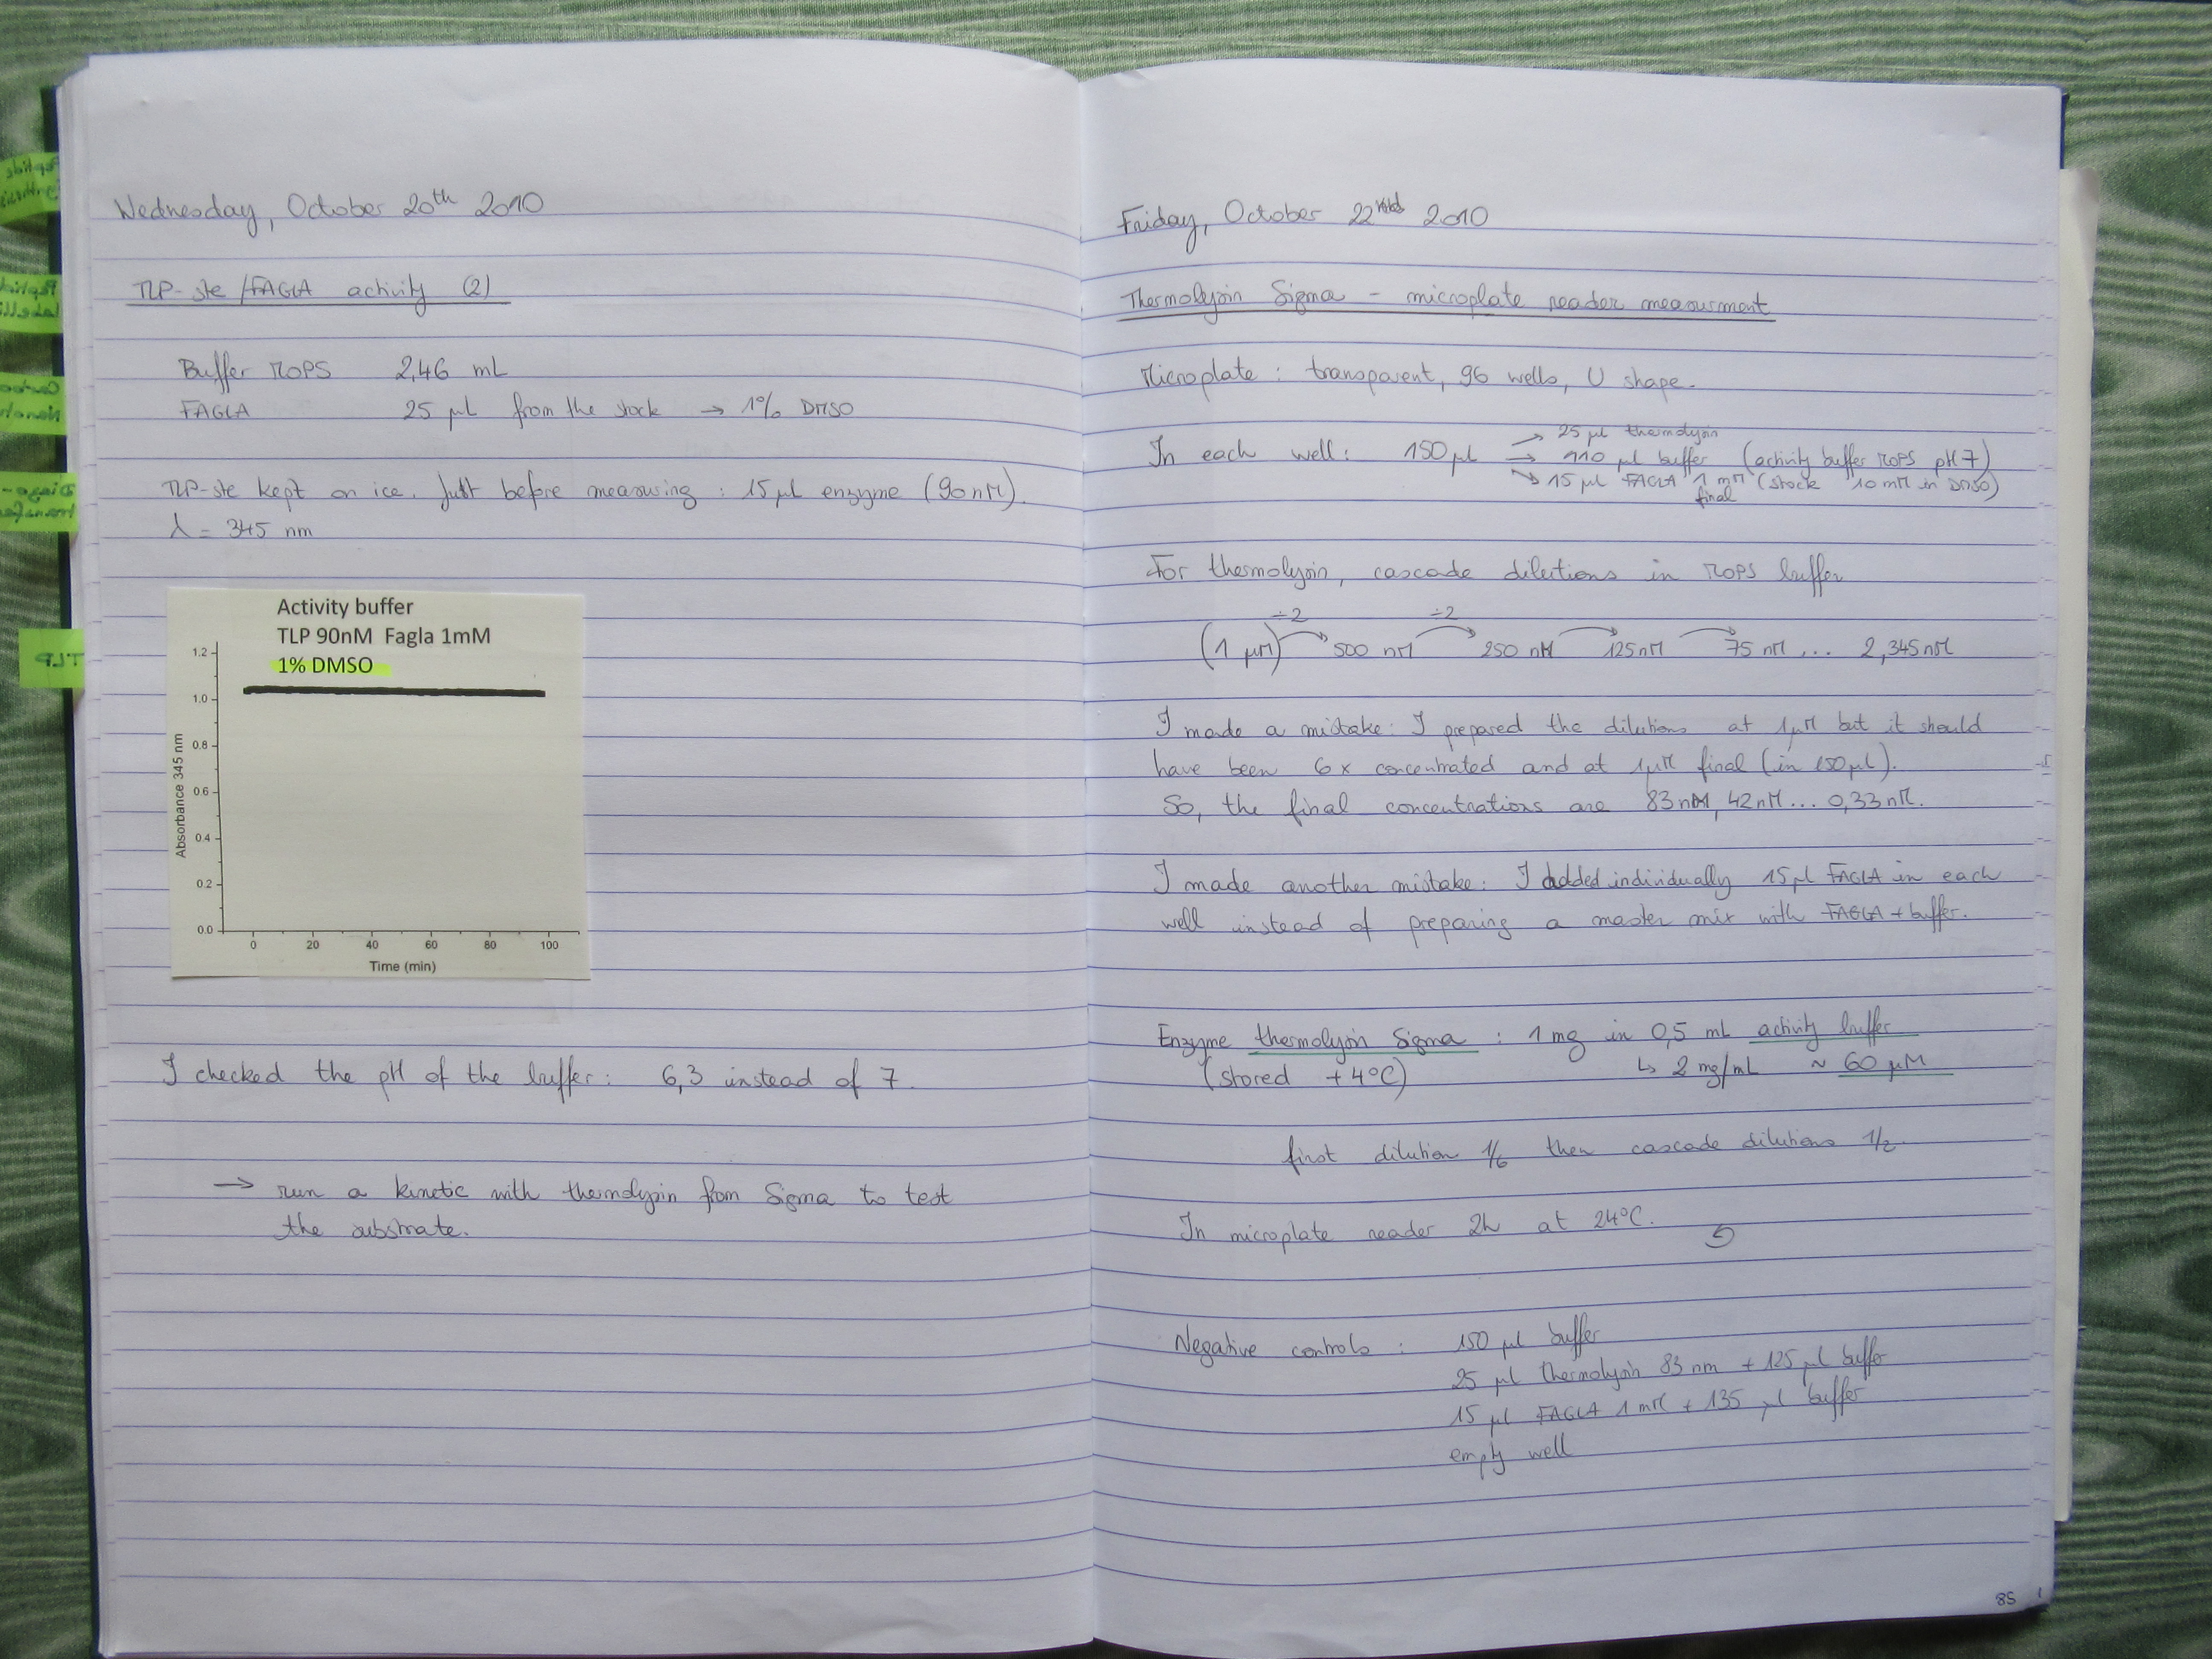 Wednesday, October 20th 2010
TLP-ste/FAGLA activity (2)
Buffer MOPS 2,46 mL
FAGLA 25 µL from the stock → 1% DMSO
TLP-ste kept on ice. Just before measuring : 15 µL enzyme (90 nM).
λ = 345 nm
Activity buffer
TLP 90nM Fagla 1mM
1% DMSO
1.2
1.0
0.8
0.6
0.4
0.2
0.0
Absorbance 345 nm
0 20 40 60 80 100
Time (min)
I checked the pH of the buffer : 6,3 instead of 7.
→ run a kinetic with thermolysin from Sigma to test
the substrate.
TLP
Friday, October 22nd 2010
Thermolysin Sigma - microplate reader measurment
Microplate : transparent, 96 wells, U shape.
In each well : 150 µl → 25 µl thermolysin
→ 110 µl buffer (activity buffer MOPS pH 7)
→ 15 µl FAGLA 1 mM (stock 10 mM in DMSO)
final
For thermolysin, cascade dilutions in MOPS buffer
÷2 ÷2
(1 µM) 500 nM 250 nM 125 nM 75 nM ... 2,345 nM
I made a mistake : I prepared the dilutions at 1µM but it should
have been 6x concentrated and at 1µM final (in 150µl).
So, the final concentrations are 83 nM, 42 nM ... 0,33 nM.
I made another mistake : I added individually 15µl FAGLA in each
well instead of preparing a master mix with FAGLA + buffer.
Enzyme thermolysin Sigma : 1 mg in 0,5 mL activity buffer
(stored +4°C) ↳ 2 mg/mL ~ 60 µM
first dilution 1/6 then cascade dilutions 1/2
In microplate reader 2h at 24°C.
Negative controls : 150 µl buffer
25 µl thermolysin 83 nm + 125 µl buffer
15 µl FAGLA 1 mM + 135 µl buffer
empty well
85